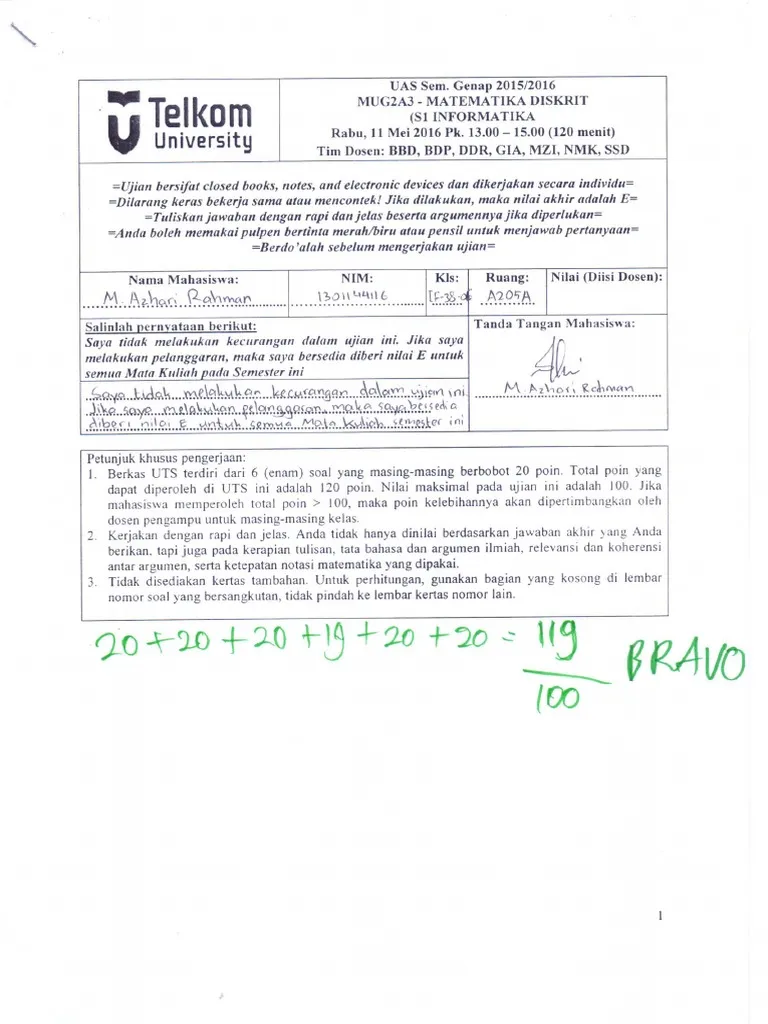 Telkom
University
UAS Sem. Genap 2015/2016
MUG2A3 - MATEMATIKA DISKRIT
(S1 INFORMATIKA
Rabu, 11 Mei 2016 Pk. 13.00 – 15.00 (120 menit)
Tim Dosen: BBD, BDP, DDR, GIA, MZI, NMK, SSD
=Ujian bersifat closed books, notes, and electronic devices dan dikerjakan secara individu=
=Dilarang keras bekerja sama atau mencontek! Jika dilakukan, maka nilai akhir adalah E=
=Tuliskan jawaban dengan rapi dan jelas beserta argumennya jika diperlukan=
=Anda boleh memakai pulpen bertinta merah/biru atau pensil untuk menjawab pertanyaan=
=Berdo'alah sebelum mengerjakan ujian=
Nama Mahasiswa: NIM: Kls: Ruang: Nilai (Diisi Dosen):
M. Azhari Rahman 1301144116 IF-38-06 A205A
Salinlah pernyataan berikut:
Saya tidak melakukan kecurangan dalam ujian ini. Jika saya
melakukan pelanggaran, maka saya bersedia diberi nilai E untuk
semua Mata Kuliah pada Semester ini
Saya tidak melakukan kecurangan dalam ujian ini
Jika saya melakukan pelanggaran, maka saya bersedia
diberi nilai E untuk semua Mata Kuliah semester ini
Tanda Tangan Mahasiswa:
M. Azhari Rahman
Petunjuk khusus pengerjaan:
1. Berkas UTS terdiri dari 6 (enam) soal yang masing-masing berbobot 20 poin. Total poin yang
dapat diperoleh di UTS ini adalah 120 poin. Nilai maksimal pada ujian ini adalah 100. Jika
mahasiswa memperoleh total poin > 100, maka poin kelebihannya akan dipertimbangkan oleh
dosen pengampu untuk masing-masing kelas.
2. Kerjakan dengan rapi dan jelas. Anda tidak hanya dinilai berdasarkan jawaban akhir yang Anda
berikan, tapi juga pada kerapian tulisan, tata bahasa dan argumen ilmiah, relevansi dan koherensi
antar argumen, serta ketepatan notasi matematika yang dipakai.
3. Tidak disediakan kertas tambahan. Untuk perhitungan, gunakan bagian yang kosong di lembar
nomor soal yang bersangkutan, tidak pindah ke lembar kertas nomor lain.
20 + 20 + 20 + 19 + 20 + 20 = 119 BRAVO
100
1